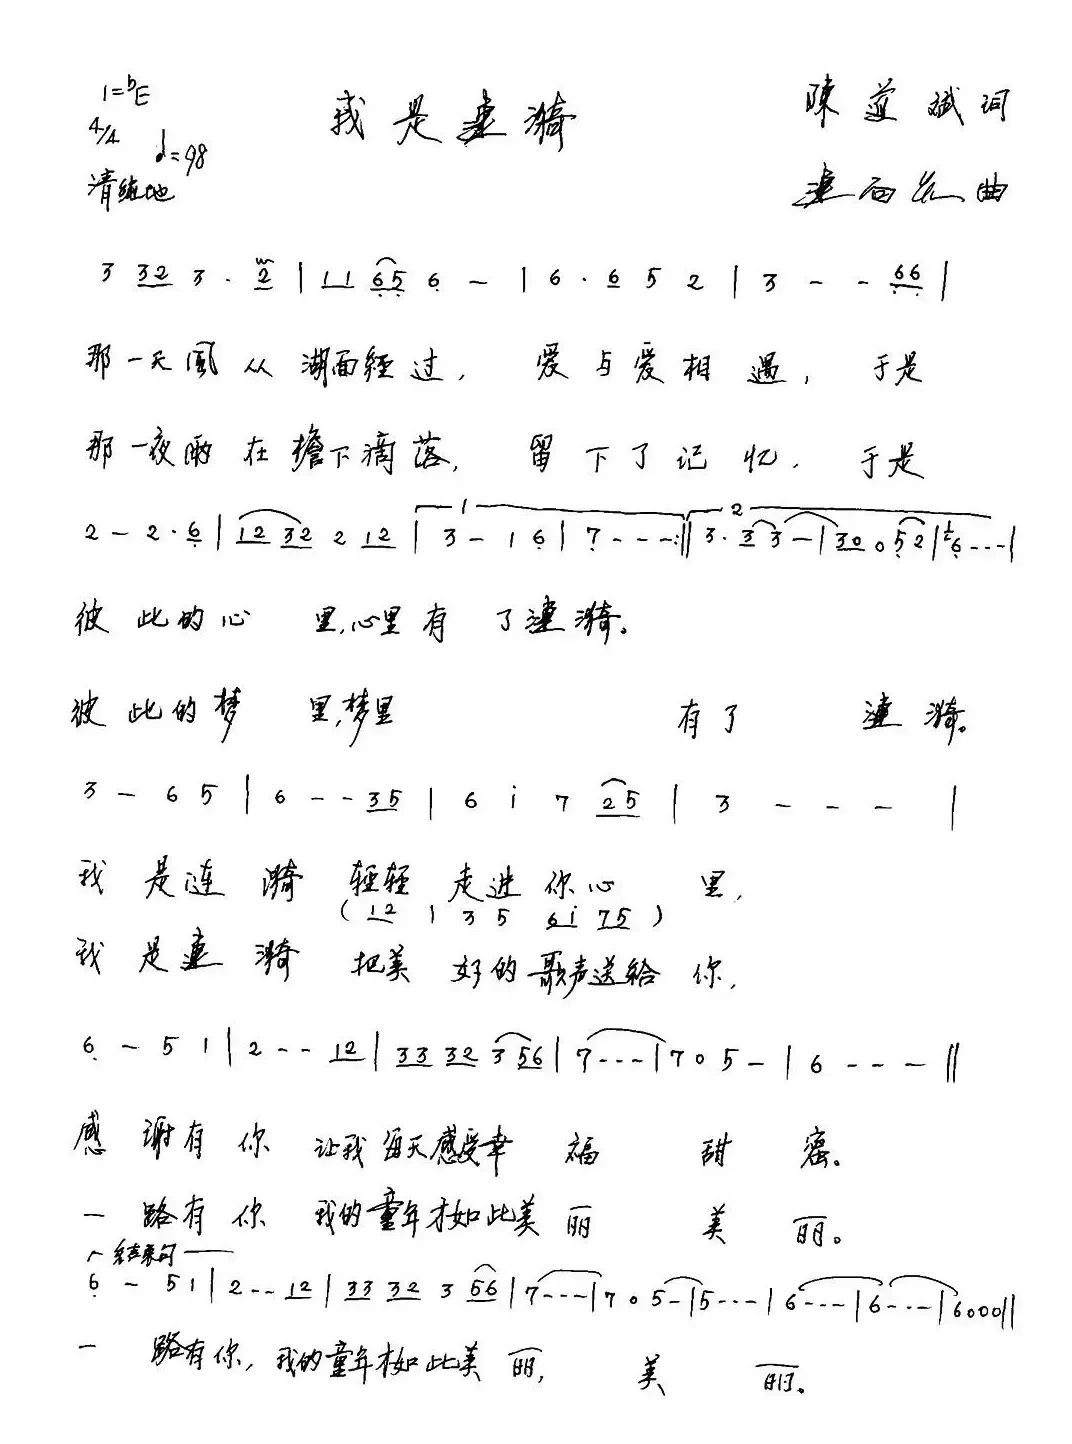 1=♭E
我是涟漪
陳道斌词
4/4 ♩=98
清纯地
曲
3 32 3 · 2 | 11 65 6 - | 6 · 6 5 2 | 3 - - 66 |
那一天風从湖面經过, 爱与爱相遇, 于是
那一夜雨在檐下滴落, 留下了记忆, 于是
2 - 2 · 6 | 12 32 2 12 | 1 3 - 1 6 | 7 - - - :‖ 2 3 · 3 3 - | 30 0 52 | 6 - - - |
彼此的心里,心里有了漣漪。
彼此的梦里,梦里有了漣漪。
3 - 6 5 | 6 - - 35 | 6 i 7 25 | 3 - - - |
我是涟漪轻轻走进你心里,
( 12 1 3 5 6i 75 )
我是涟漪把美好的歌声送給你,
6 - 5 1 | 2 - - 12 | 33 32 3 56 | 7 - - - | 7 0 5 - | 6 - - - ‖
感谢有你让我每天感受幸福甜蜜。
一路有你我的童年才如此美丽美丽。
结束句
6 - 5 1 | 2 - - 12 | 33 32 3 56 | 7 - - - | 7 0 5 - | 5 - - - | 6 - - - | 6 - - - | 6000 ‖
一路有你,我的童年才如此美丽,美丽。